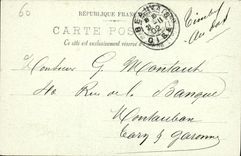 60
RÉPUBLIQUE FRAN
CARTE POS
Ce côté est exclusivement réservé
BEAUVAIS
OISE
Timbre
au dos
à Monsieur G Montaut
40 Rue de la Banque
Montauban
Tarn & Garonne